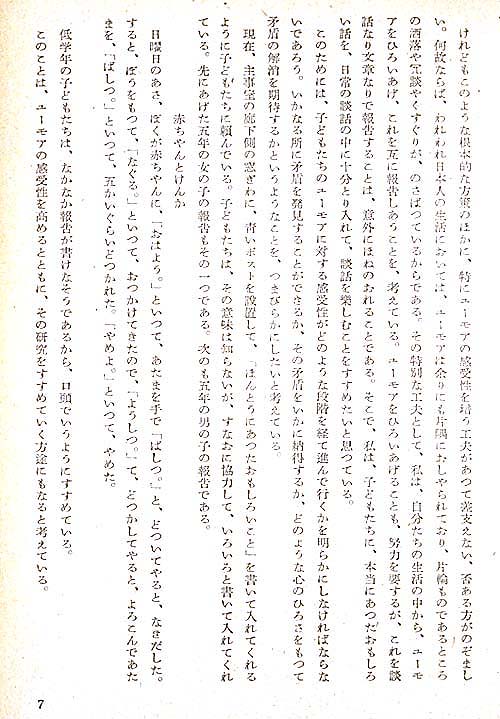 けれどもこのような根本的た方策のほかに、特にユーモアの感受性を培う工夫があつて差支えない、否ある方がのぞまし
い。何故ならば、われわれ日本人の生活においては、ユーモアは余りにも片隅におしやられており、片輪ものであるところ
の洒落や冗談やくすぐりが、のさばつているからである。その特別な工夫として、私は、自分たちの生活の中から、ユーモ
アをひろいあげ、これを互に報告しあうことを、考えている。ユーモアをひろいあげることも、努力を要するが、これを談
話なり文章なりで報告することは、意外にほねのおれることである。そこで、私は、子どもたちに、本当にあつたおもしろ
い話を、日常の談話の中に十分とり入れて、談話を楽しむことをすすめたいと思つている。
このためには、子どもたちのユーモアに対する感受性がどのような段階を経て進んで行くかを明らかにしなければならな
いであろう。いかなる所に矛盾を発見することができるか、その矛盾をいかに納得するか、どのような心のひろさをもつて
矛盾の解消を期待するかというようなことを、つまびらかにしたいと考えている。
現在、主事室の廊下側の窓ぎわに、青いポストを設置して、「ほんとうにあつたおもしろいこと」を書いて入れてくれる
ように子どもたちに頼んでいる。子どもたちは、その意味は知らないが、すなおに協力して、いろいろと書いて入れてくれ
ている。先にあげた五年の女の子の報告もその一つである。次のも五年の男の子の報告である。
赤ちやんとけんか
日曜日のあさ、ぼくが赤ちやんに、「おはよう。」といつて、あたまを手で「ばしつ。」と、どついてやると、なきだした。
すると、ぼうをもつて、「なぐる。」といつて、おつかけてきたので、「ようしつ。」て、どつかしてやると、よろこんであた
まを、「ばしつ。」といつて、五かいぐらいどつかれた。「やめよ。」といつて、やめた。
低学年の子どもたちは、なかなか報告が書けなそうであるから、口頭でいうようにすすめている。
このことは、ユーモアの感受性を高めるとともに、その研究をすすめていく方途にもなると考えている。
7